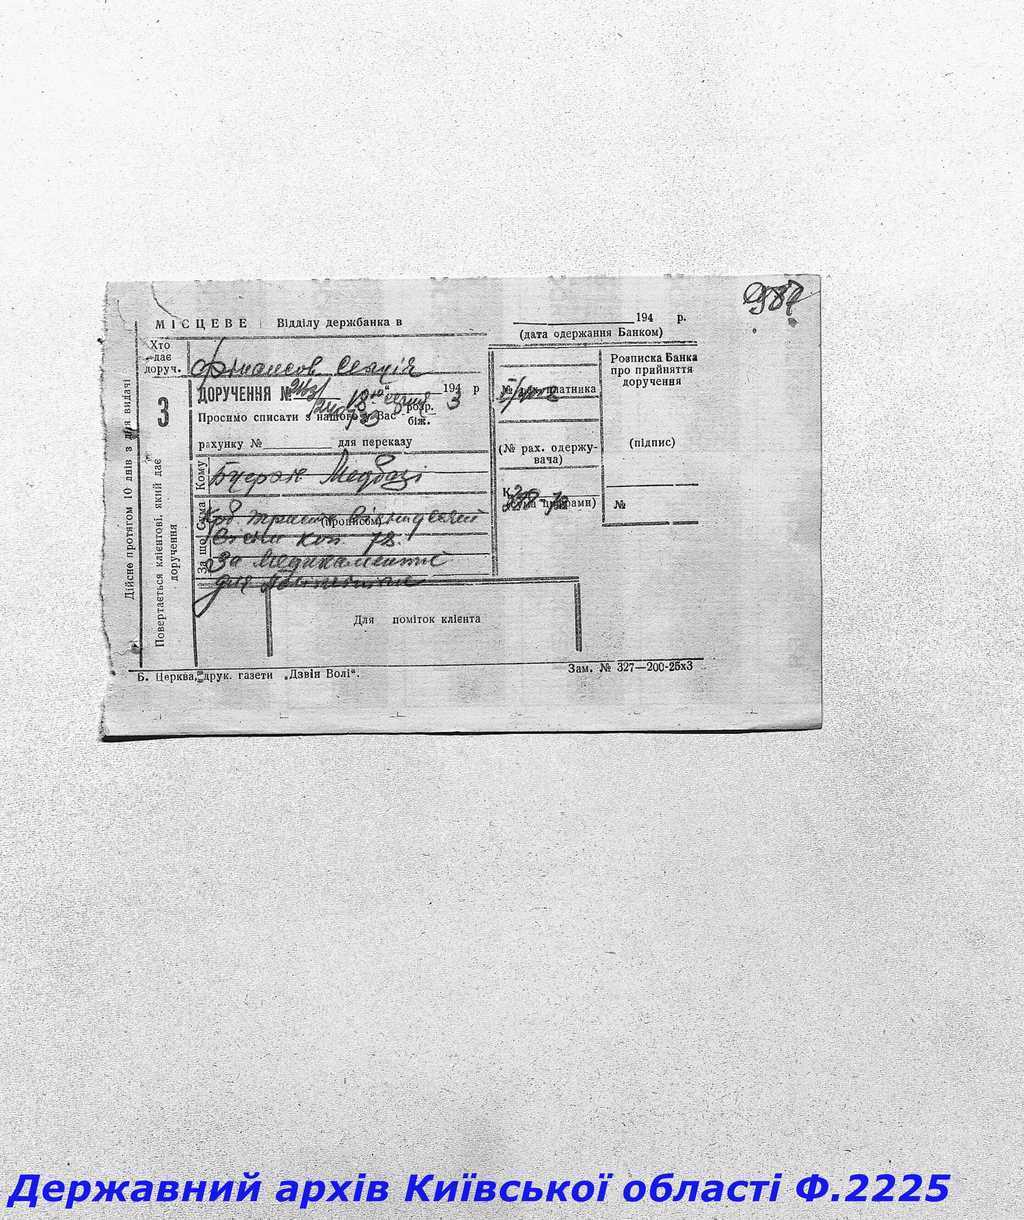 МІСЦЕВЕ Відділу держбанка в
194 р.
(дата одержання Банком)
Хто дає доруч.
Фінансов.
ДОРУЧЕННЯ №
18 серпня 1943 р
Просимо списати з нашого у Вас розр. біж.
рахунку № для переказу
Кому
Медбазі
Сума
Крб. триста вісімдесят
(прописом)
вісім коп 78.
За що
За медикаменти
для
Для поміток клієнта
№ рах. платника
(№ рах. одержувача)
(сума цифрами)
Розписка Банка
про прийняття
доручення
(підпис)
№
3
Дійсне протягом 10 днів з дня видачі
Повертається клієнтові, який дає
доручення
Б. Церква, друк. газети „Дзвін Волі“.
Зам. № 327—200-25х3
Державний архів Київської області Ф.2225